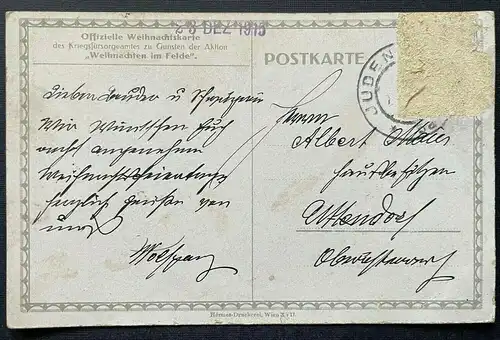 23 DEZ 1915
Offizielle Weihnachtskarte
des Kriegsfürsorgeamtes zu Gunsten der Aktion
„Weihnachten im Felde“.
POSTKARTE
JUDEN
Lieber Bruder u
Wir Wünschen Euch
recht angenehme
Weihnachtsfeiertage
herzlich grüßen von
uns
Wolfgang
Herrn
Albert
Hausbesitzer
Uttendorf
Oberösterreich
Hermes-Druckerei, Wien